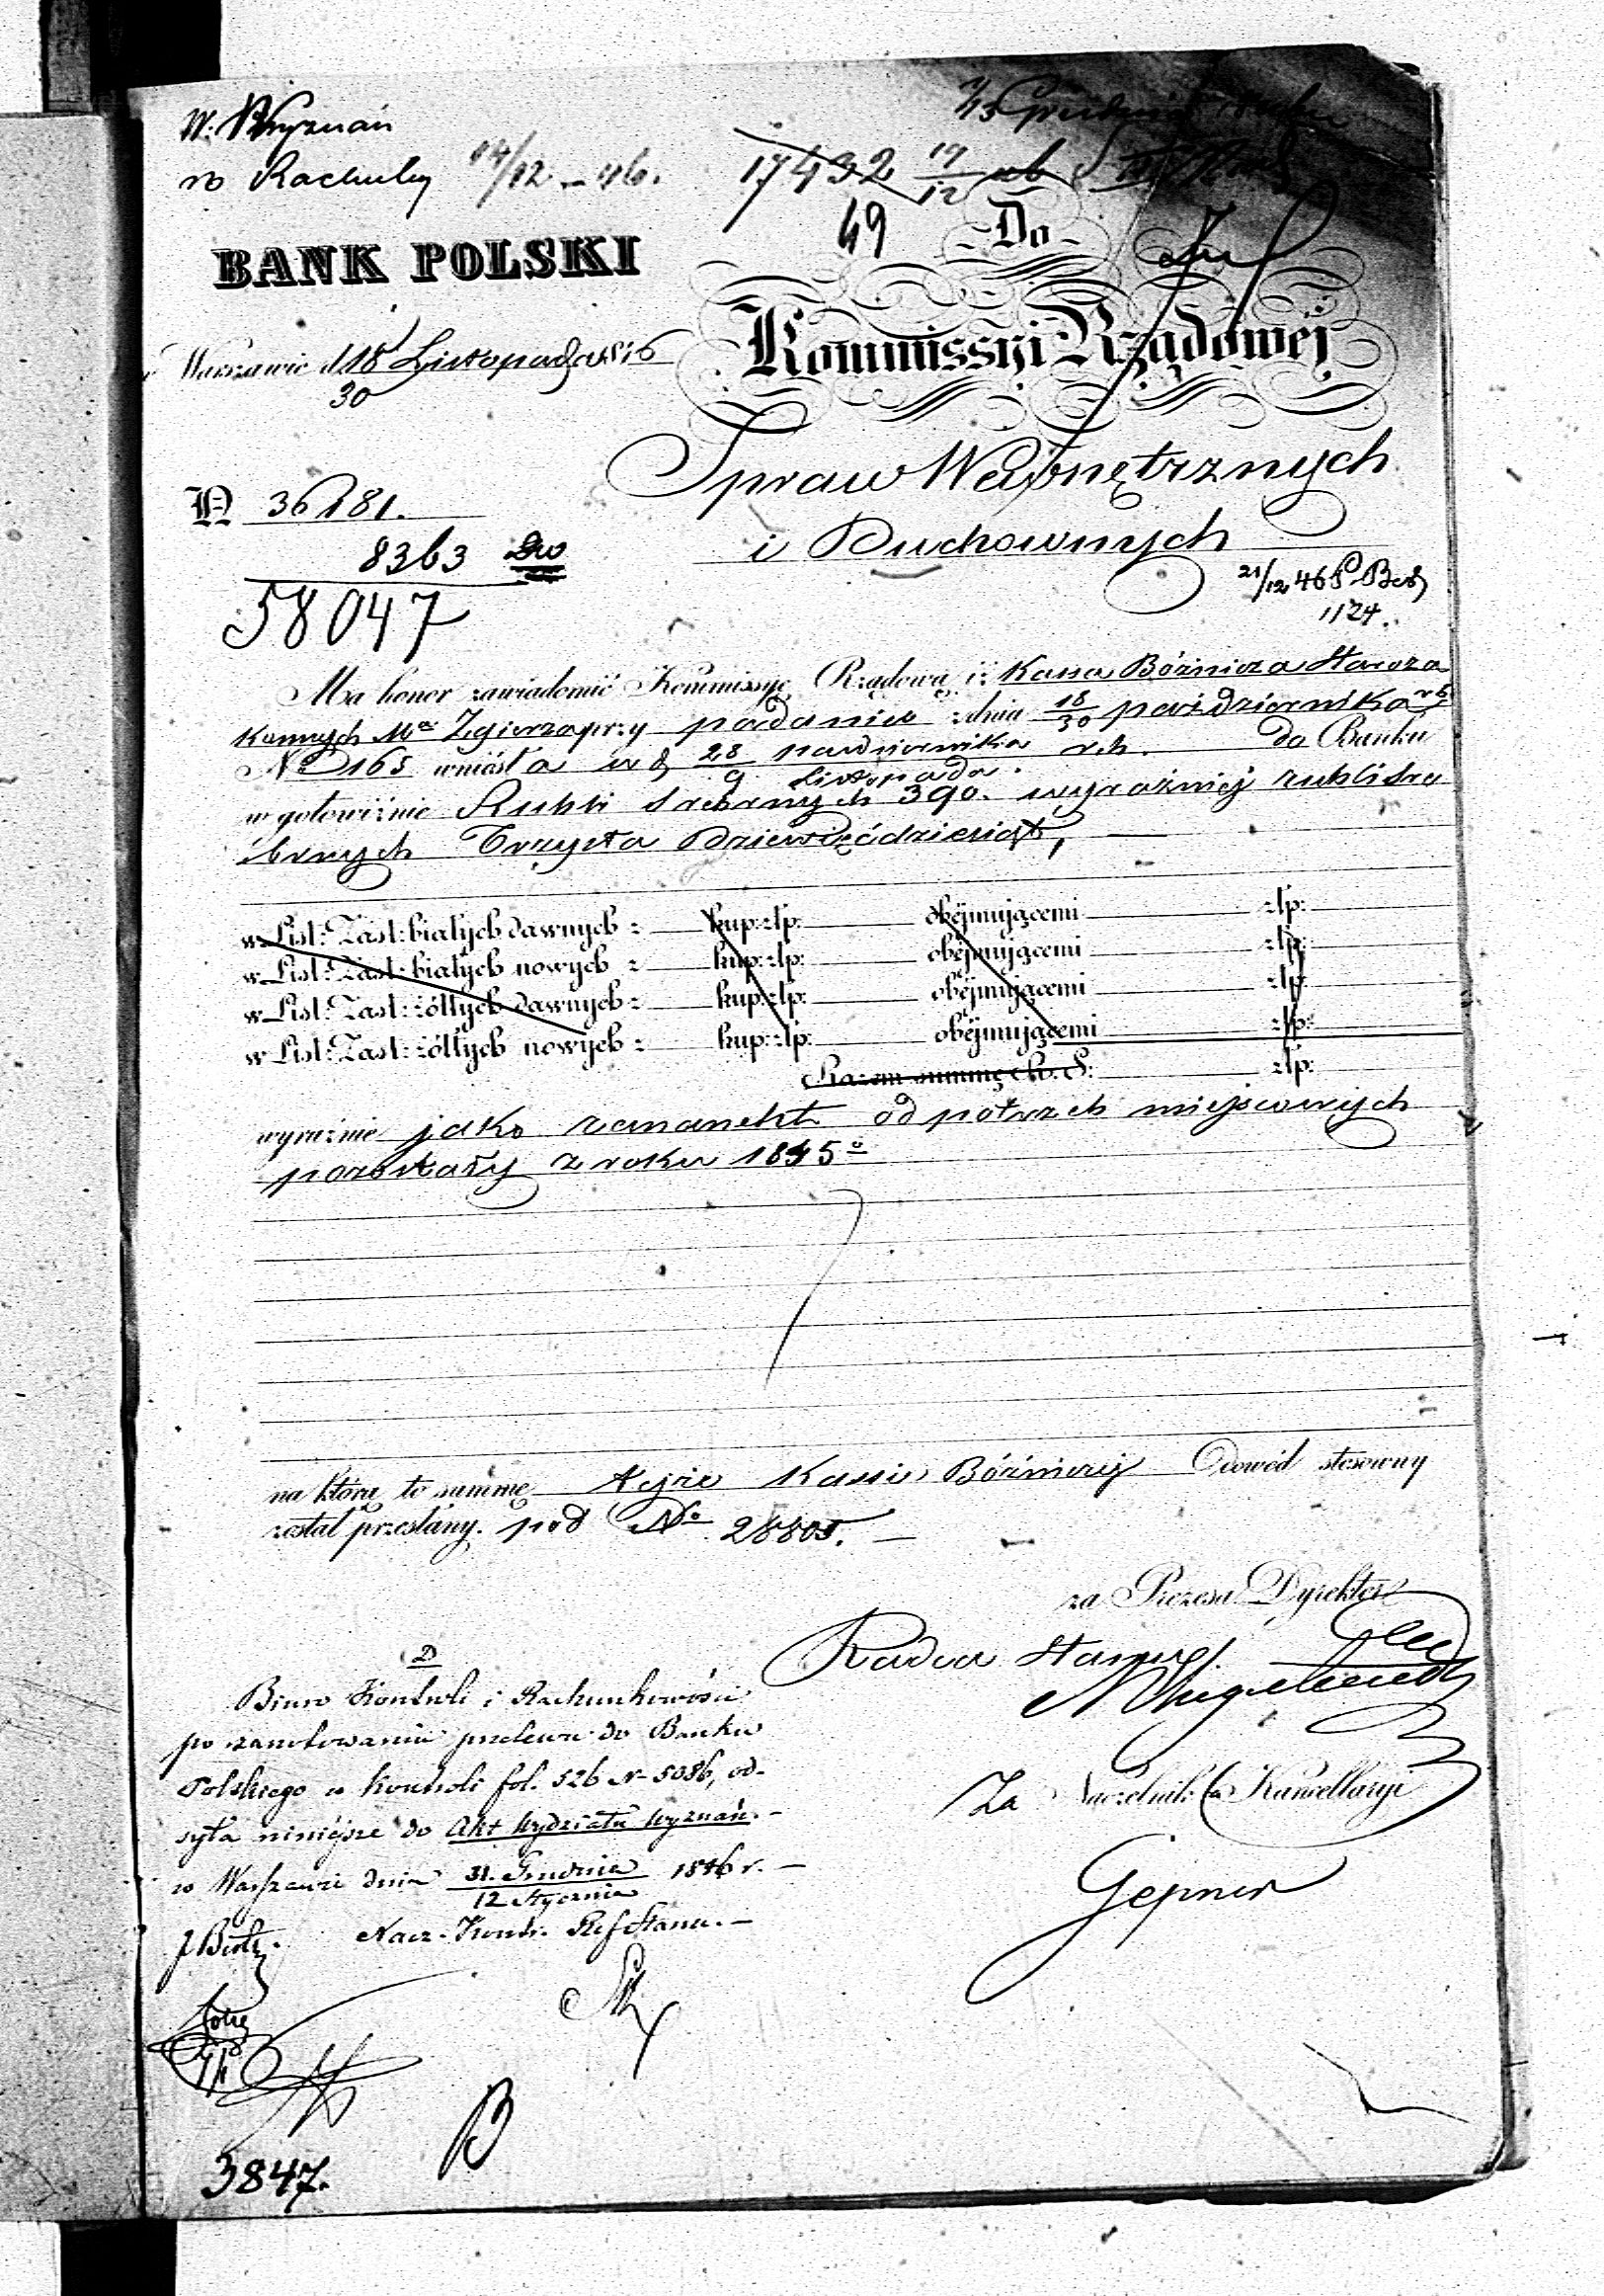 W. Wyznań
w Rachuby 14/12 - 46.
17432 19/12
49
BANK POLSKI
Do
Kommissyi Rządowej
Warszawie d 18/30 Listopada 1846
Spraw Wewnętrznych
i Duchownych
N 36181.
8363
58047
21/12 46
1124.
Ma honor zawiadomić Kommissyę Rządową iż Kassa Bóżnicza Staroza-
konnych Mta Zgierza przy podaniu z dnia 18/30 października rb
No 165 wniosła w d 28 października / 9 Listopada r.b. do Banku
w gotowiźnie Rubli srebrnych 390. wyraźniej rubli sre
brnych Trzysta Dziewięćdziesiąt,
w List: Zast: białych dawnych: kup: złp: obejmującemi złp:
w List: Zast: białych nowych: kup: złp: obejmującemi złp:
w List: Zast: żółtych dawnych: kup: złp: obejmującemi złp:
w List: Zast: żółtych nowych: kup: złp: obejmującemi złp:
Razem summę Rb. S: złp:
wyraźnie jako remanent od potrzeb miejscowych
pozostały z roku 1845o
na którą to summę tejże Kassie Bóżniczej Dowód stosowny
został przesłany. pod No 28805.
za Prezesa Dyrektor
Radca Stanu
Biuro Kontroli i Rachunkowości
po zanotowaniu przelewu do Banku
Polskiego w kontroli fol. 526 N 5086, od-
syła niniejsze do Akt Wydziału Wyznań.
w Warszawie dnia 31. Grudnia / 12 Stycznia 1846 r.
Nacz. Kontr. Ref Stanu.
Za Naczelnika Kancellaryi
Gepner
B
3847.